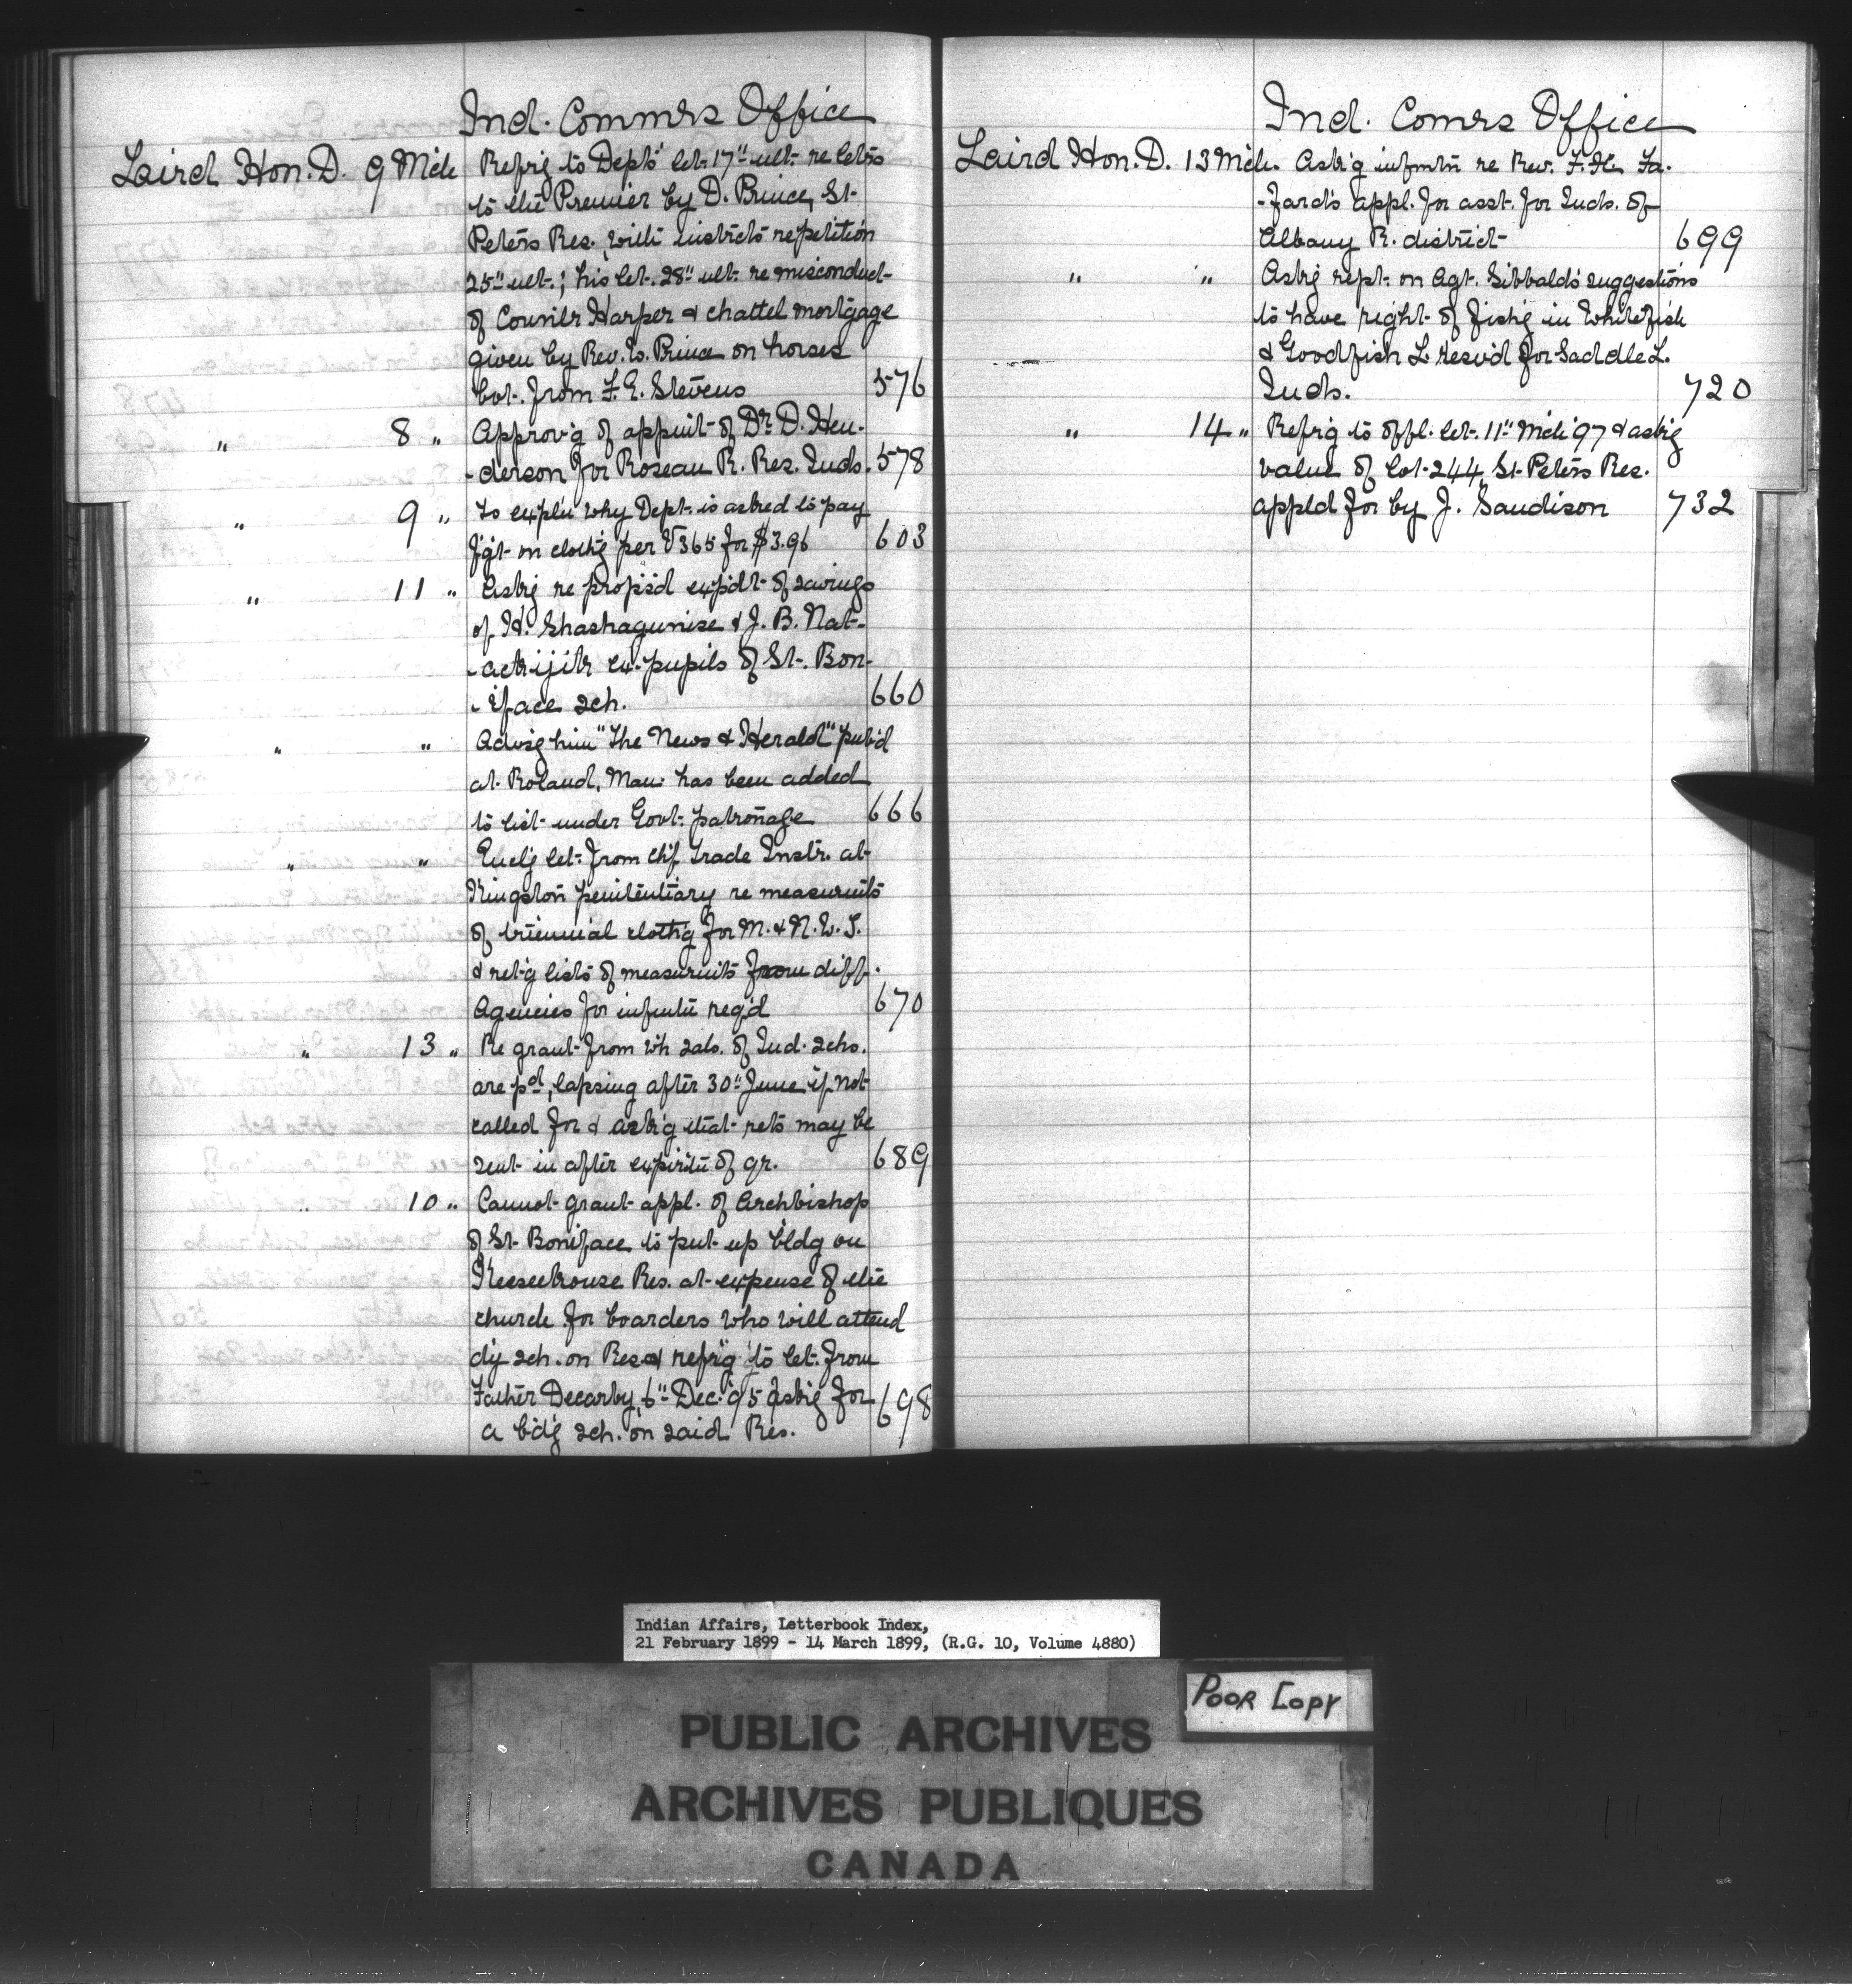 Ind. Commrs Office
Laird Hon. D. 9 Mch Refrig to Depts' let. 17" ult. re letrs
to the Premier by D. Prince, St.
Peters Res. with instrcts repetition
25" ult.; his let. 28" ult. re misconduct
of Counclr Harper & chattel mortgage
given by Rev. W. Prince on horses
bot. from F. E. Stevens 576
" 8 " Approv'g of appmt of Dr. D. Hen-
-derson for Roseau R. Res. Inds. 578
" 9 " To expln why Dept. is asked to pay
f'g't on cloth'g per V365 for $3.96 603
" 11 " Ask'g re propsd expdt of savings
of H. Shashagunise & J. B. Nat-
ex-pupils of St. Bon-
-iface sch. 660
" " Advis'g him "The News & Herald" pub'd
at Roland, Man. has been added
to list under Govt. patronage 666
" " Encl'g let. from Chf. Trade Instr. at
Kingston penitentiary re measurmts
of triennial cloth'g for M. & N. W. T.
& ret'g lists of measurmts from diff.
Agencies for infmtn req'd 670
" 13 " Re grant from wh sals. of Ind. schs.
are pd, lapsing after 30" June if not
called for & ask'g that rets may be
sent in after expirtn of qr. 689
" 10 " Cannot grant appl. of Archbishop
of St. Boniface to put up bldg on
Keeseekouse Res. at expense of the
church for boarders who will attend
dy sch. on Res. & refrig to let. from
Father Decorby, 6" Dec. '95 ask'g for
a bd'g sch. on said Res. 698
Ind. Comrs Office
Laird Hon. D. 13 Mch. Ask'g infmtn re Rev. F. X. Fa-
-fard's appl. for asst. for Inds. of
Albany R. district 699
" " Ask'g rept. on Agt. Sibbald's suggestions
to have right of fish'g in Whitefish
& Goodfish L. resvd for Saddle L.
Inds. 720
" 14 " Refrig to offl. let. 11" Mch '97 & ask'g
value of lot 244, St. Peters Res.
appld for by J. Sandison 732
Indian Affairs, Letterbook Index,
21 February 1899 - 14 March 1899, (R.G. 10, Volume 4880)
POOR COPY
PUBLIC ARCHIVES
ARCHIVES PUBLIQUES
CANADA